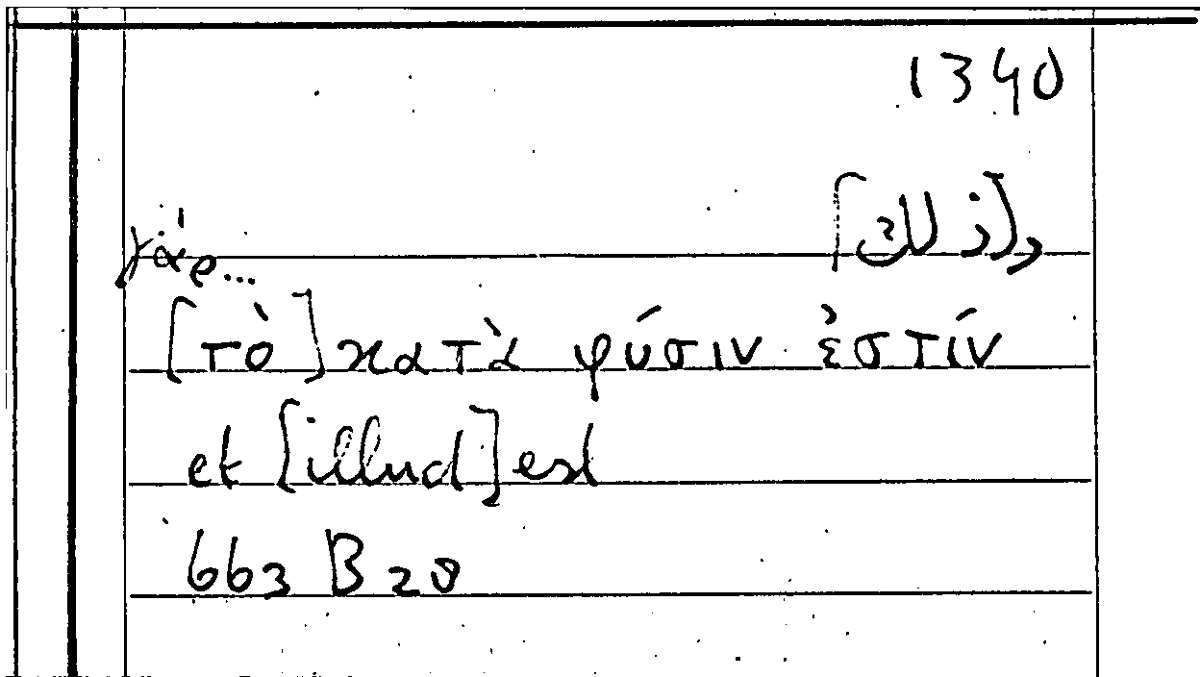 1340
و[ذلك]
γὰρ...
[τὸ] κατὰ φύσιν ἐστίν
et [illud] est
663 B 28